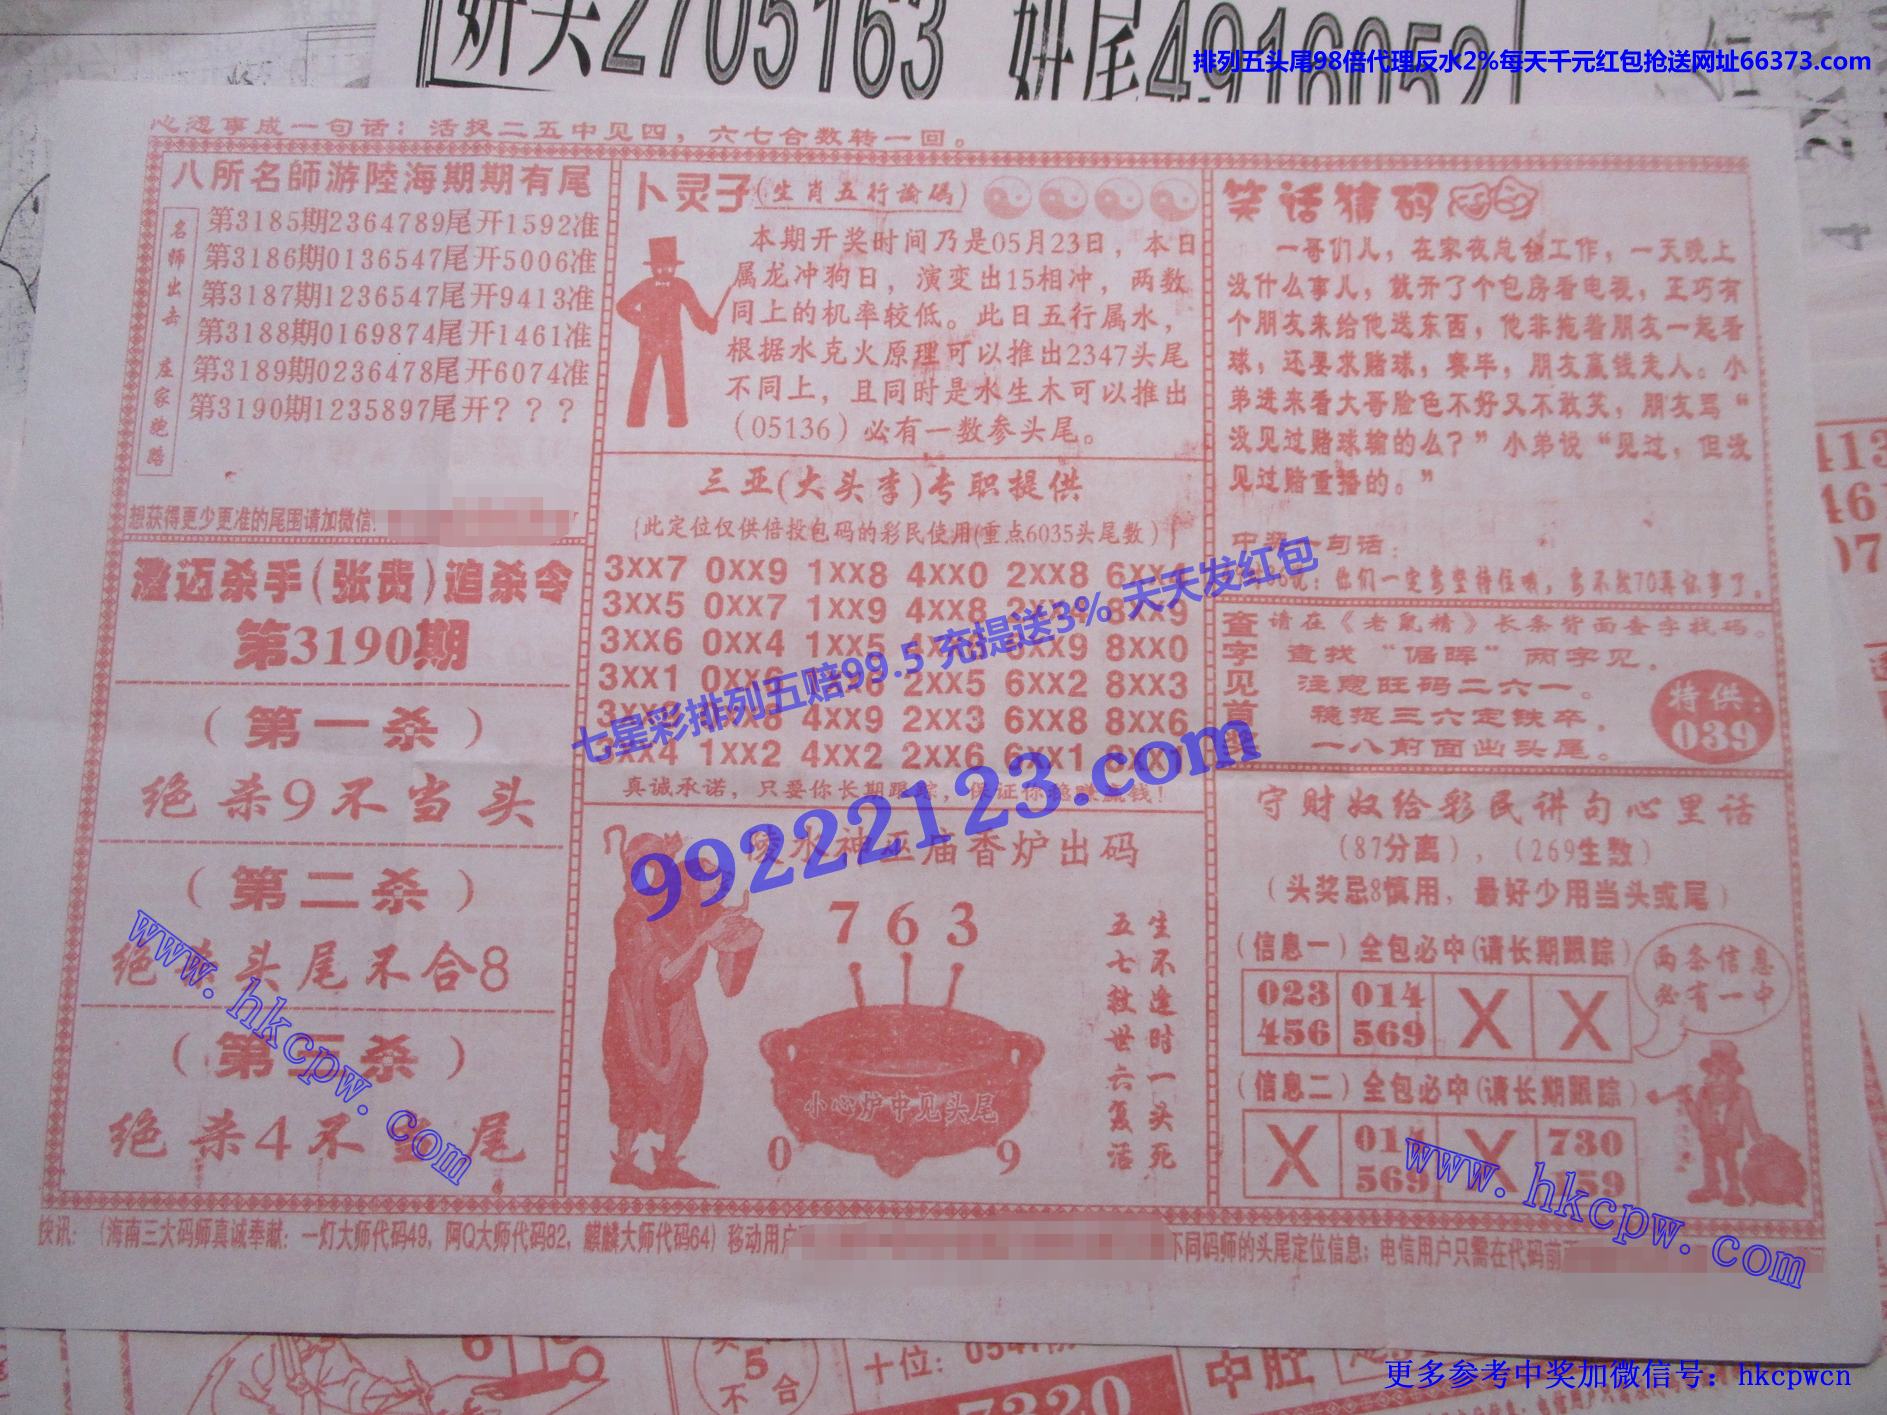 妍头2705163 妍尾4916052
排列五头尾98倍代理反水2%每天千元红包抢送网址66373.com
心想事成一句话：活捉二五中见四，六七合数转一回。
八所名師游陸海期期有尾
名师出击 庄家跑路
第3185期2364789尾开1592准
第3186期0136547尾开5006准
第3187期1236547尾开9413准
第3188期0169874尾开1461准
第3189期0236478尾开6074准
第3190期1235897尾开？？？
想获得更少更准的尾围请加微信
澄迈杀手(张贵)追杀令
第3190期
（第一杀）
绝杀9不当头
（第二杀）
绝杀头尾不合8
（第三杀）
绝杀4不当尾
卜灵子(生肖五行論碼)
本期开奖时间乃是05月23日，本日
属龙冲狗日，演变出15相冲，两数
同上的机率较低。此日五行属水，
根据水克火原理可以推出2347头尾
不同上，且同时是水生木可以推出
（05136）必有一数参头尾。
三亚(大头李)专职提供
(此定位仅供倍投包码的彩民使用(重点6035头尾数）)
3XX7 0XX9 1XX8 4XX0 2XX8 6XX
3XX5 0XX7 1XX9 4XX8 8XX9
3XX6 0XX4 1XX5 XX9 8XX0
3XX1 2XX5 6XX2 8XX3
4XX9 2XX3 6XX8 8XX6
3XX4 1XX2 4XX2 2XX6 6XX1
真诚承诺，只要你长期跟踪，保证你稳赚赢钱！
陵水神巫庙香炉出码
7 6 3
生不逢时一头死
五七救世六复活
小心炉中见头尾
0 9
笑话猜码
一哥们儿，在家夜总会工作，一天晚上
没什么事儿，就开了个包房看电视，正巧有
个朋友来给他送东西，他非拖着朋友一起看
球，还要求赌球，赛毕，朋友赢钱走人。小
弟进来看大哥脸色不好又不敢笑，朋友骂“
没见过赌球输的么？”小弟说“见过，但没
见过赌重播的。”
中奖一句话：
说：你们一定要坚持住哦，要不然70再怀事了。
查字见首奖
请在《老鼠精》长条背面查字找码。
查找“倡晖”两字见。
注意旺码二六一。
稳捉三六定铁卒，
一八前面出头尾。
特供：
039
守财奴给彩民讲句心里话
（87分离），（269生数）
（头奖忌8慎用，最好少用当头或尾）
（信息一）全包必中(请长期跟踪)
023 014 X X
456 569
两条信息
必有一中
（信息二）全包必中(请长期跟踪)
X 01 X 730
569 159
快讯：（海南三大码师真诚奉献：一灯大师代码49，阿Q大师代码82，麒麟大师代码64）移动用户
不同码师的头尾定位信息；电信用户只需在代码前
七星彩排列五赔99.5 充提送3% 天天发红包
99222123.com
www.hkcpw.com
www.hkcpw.com
5
不合
十位：
7320
中腔
更多参考中奖加微信号：hkcpwcn